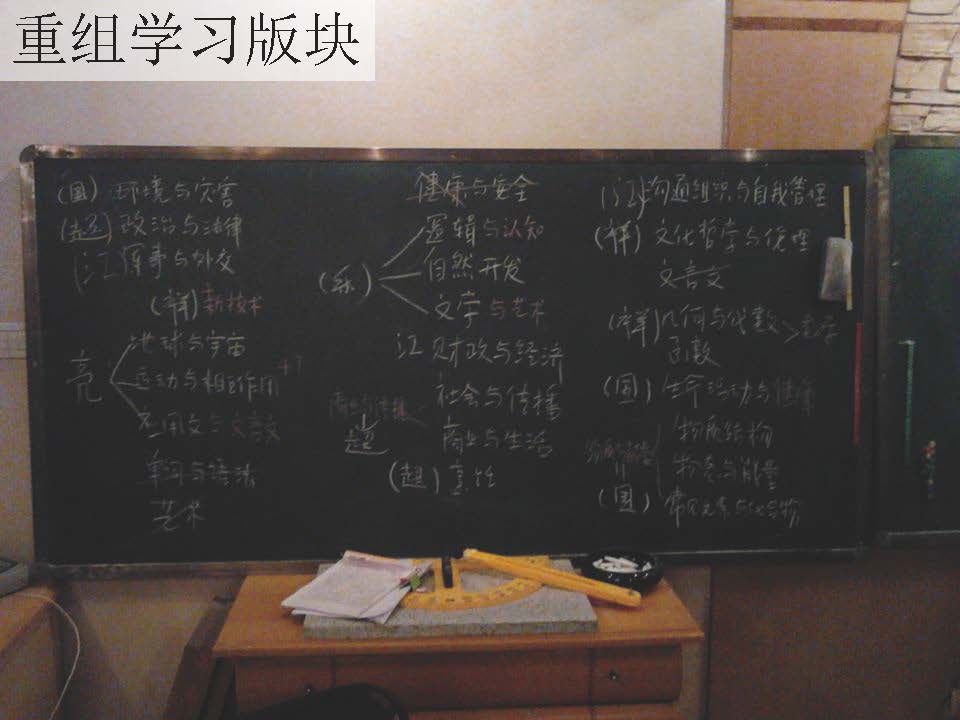 重组学习版块
(国) 环境与灾害
(超) 政治与法律
(江) 军事与外交
(祥) 新技术
亮
地球与宇宙
运动与相互作用 +1
应用文与文言文
单词与语法
艺术
健康与安全
(乐)
逻辑与认知
自然开发
文学与艺术
江 财政与经济
社会与传播
商业与传播
超
商业与生活
(超)
(江) 沟通组织与自我管理
(祥) 文化哲学与伦理
文言文
(祥) 几何与代数
函数
(国) 生命活动与健康
物质结构
物态与能量
(国) 常见元素与化合物